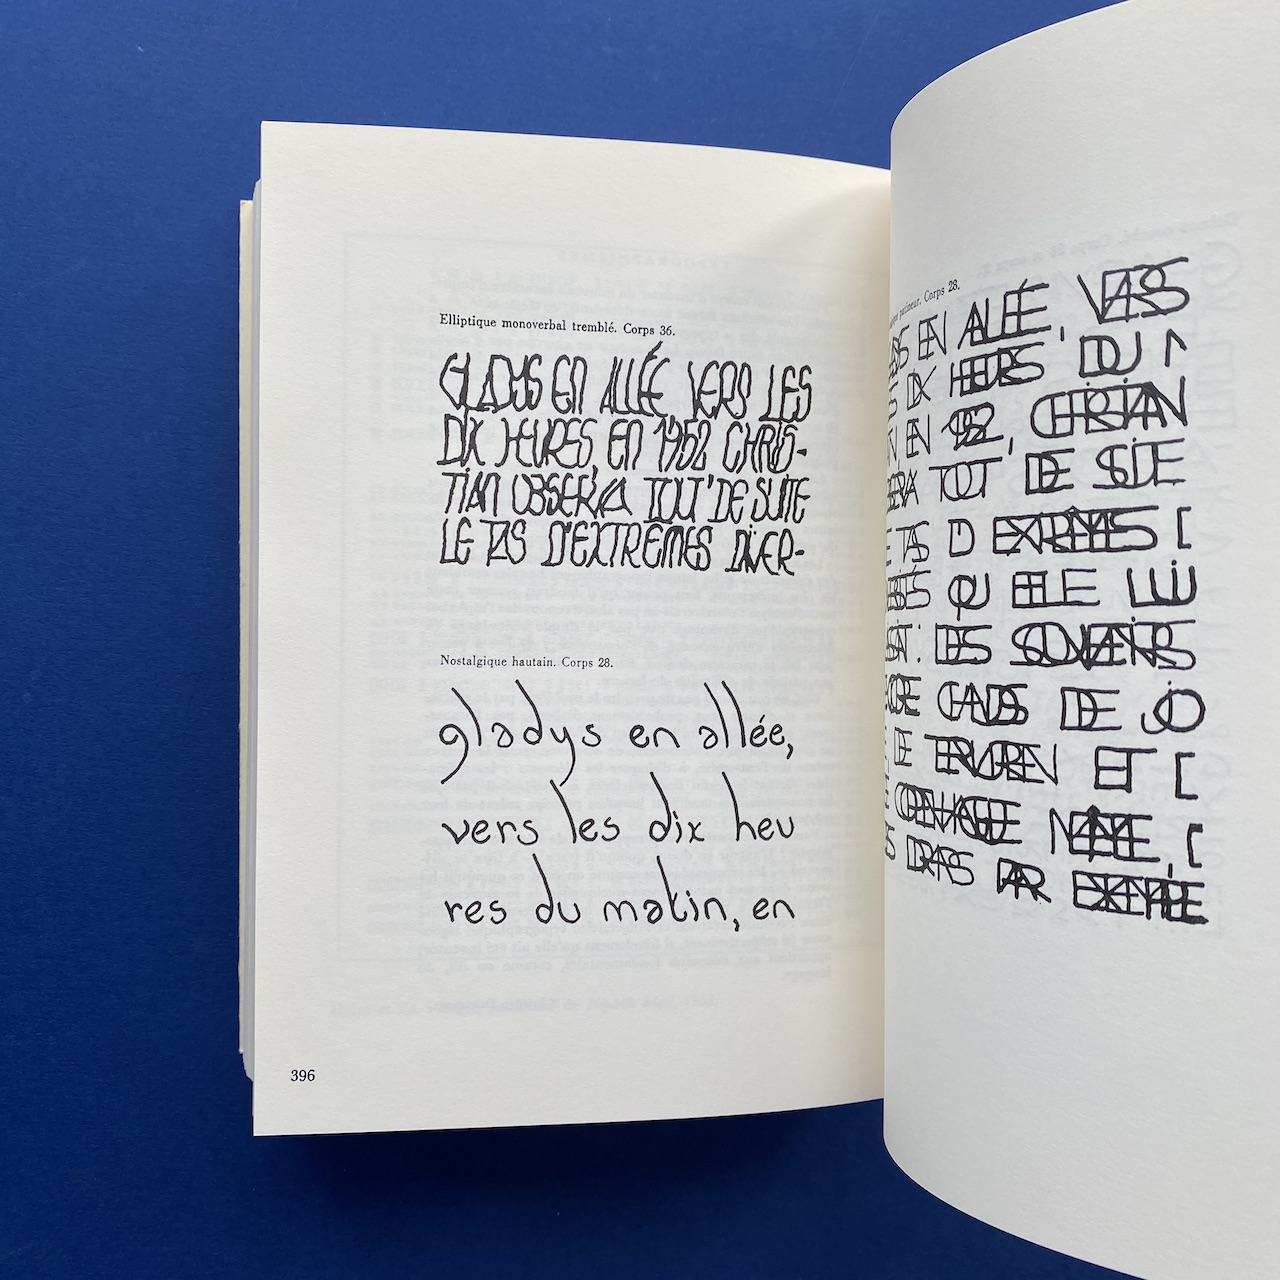 Elliptique monoverbal tremblé. Corps 36.
GLADYS EN ALLÉE, VERS LES
DIX HEURES, EN 1952 CHRIS-
TIAN OBSERVA TOUT DE SUITE
LE TAS D'EXTRÊMES DIVER-
Nostalgique hautain. Corps 28.
gladys en allée,
vers les dix heu
res du matin, en
396
patineur. Corps 28.
EN ALLÉE, VERS
DIX HEURES DU
EN 1952, CHRISTIAN
TOUT DE SUITE
TAS D EXTRÊMES [
QU ELLE LUI
DES SOUVENIRS
GLANDS DE JO
DE TERVUREN ET [
COPENHAGUE MÊME, [
DRAPS PAR EXEMPLE